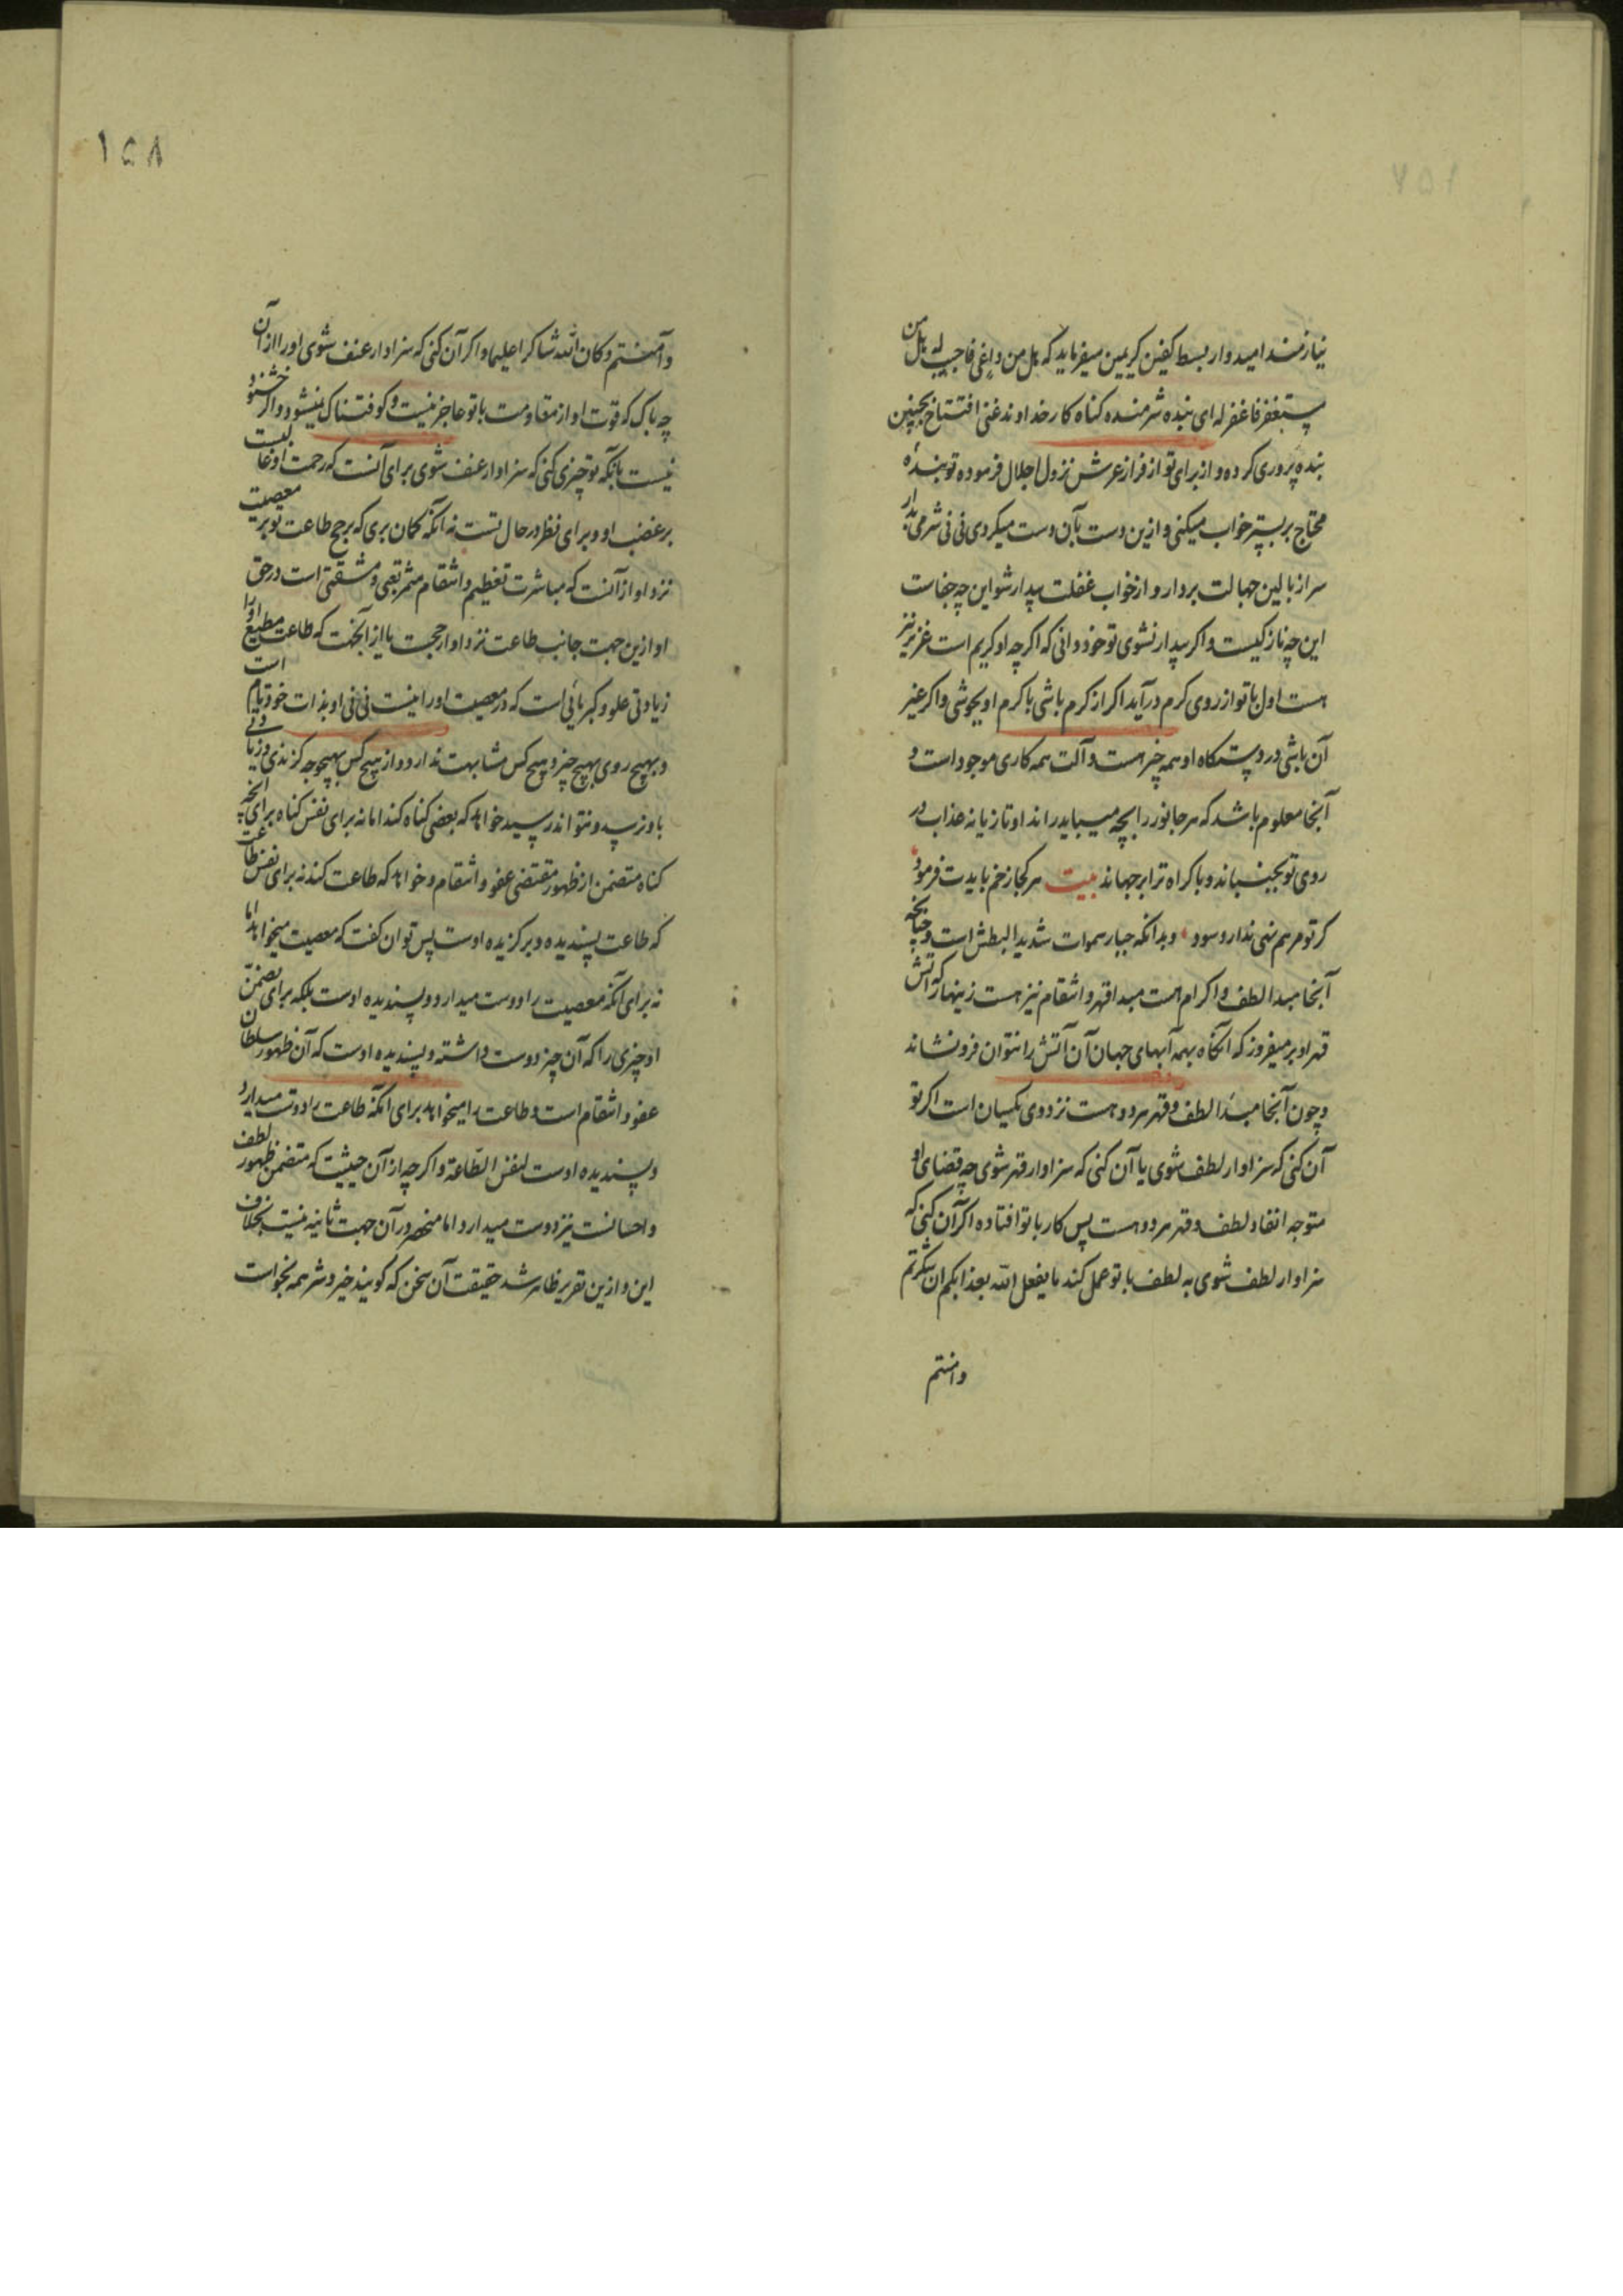 نیازمند امیدوار ببسط کفین کریمین میفرماید که هل من داعٍی فاجیب له هل من
یستغفر فاغفر له ای بنده شرمنده کناه کار خداوند غنی افتتاح بچنین
بنده پروری کرده و از برای تو از فراز عرش نزول اجلال فرموده تو بندهٔ
محتاج بر بستر خواب میکنی و ازین دست بآن دست میکردی نی نی شرمی بدار
سر از بالین جهالت بردار و از خواب غفلت بیدار شو این چه جفاست
این چه نازکیست و اکر بیدار نشوی تو خود دانی که اکر چه او کریم است عزیز نیز
هست اول با تو از روی کرم درآید اکر از کرم باشی با کرم او بجوشی و اکر غیر
آن باشی در دستکاه او همه چیز هست و آلت همه کاری موجود است و
آنجا معلوم باشد که هر جانور را بچه میباید راند او تازیانه عذاب در
روی تو بجنباند و باکراه ترا برجهاند بیت هر کجا زخم بایدت فرمود
کر تو مرهم نهی ندارد سود و بدانکه جبار سموات شدید البطش است و چنانچه
آنجا مبدا لطف و اکرام هست مبدا قهر و انتقام نیز هست زینهار که آتش
قهر او بر میفروز که آنکاه بهمه آبهای جهان آن آتش را نتوان فرو نشاند
و چون آنجا مبدأ لطف و قهر هر دو هست نزد وی یکسان است اکر تو
آن کنی که سزاوار لطف شوی یا آن کنی که سزاوار قهر شوی چه قضای او
متوجه انفاد لطف و قهر هر دو هست پس کار با تو افتاده اکر آن کنی که
سزاوار لطف شوی به لطف با تو عمل کند ما یفعل الله بعذابکم ان شکرتم
و امنتم
١٥٨
و آمنتم و کان الله شاکرا علیما و اکر آن کنی که سزاوار عنف شوی او را از آن
چه باک که قوت او از مقاومت با تو عاجز نیست و کوفتناک نمیشود و اکر خشنود
نیست بانکه تو چیزی کنی که سزاوار عنف شوی برای آنست که رحمت او غالبست
بر غضب او و برای نظر در حال تست نه آنکه کمان بری که برجح طاعت تو بر معصیت
نزد او از آنست که مباشرت تعظیم و انتقام مثمر تعبی و مشقتی است در حق
او ازین جهت جانب طاعت نزد او ارجحست یا از آنجهت که طاعت مطیع او را
زیادتی علو و کبریائی است که در معصیت او را نیست نی نی او بذات خود قایم است
و بهیچ روی بهیچ چیز و هیچ کس مشابهت ندارد و از هیچ کس بهیچوجه کزندی و زیانی
باو نرسد و نتواند رسید خواهد که بعضی کناه کنند اما نه برای نفس کناه برای آنچه
کناه متضمن از ظهور مقتضی عفو و انتقام و خواهد که طاعت کنند نه برای نفس طاعت
که طاعت پسندیده و برکزیده اوست پس توان کفت که معصیت میخواهد اما
نه برای آنکه معصیت را دوست میدارد و پسندیده اوست بلکه برای تضمن
او چیزی را که آن چیز دوست داشته و پسندیده اوست که آن ظهور سلطان
عفو و انتقام است و طاعت را میخواهد برای آنکه طاعت را دوست میدارد
و پسندیده اوست لنفس الطّاعة و اکر چه از آن حیثیت که متضمن ظهور لطف
و احسانست نیز دوست میدارد اما منحصر در آن جهت ثانیه نیست بخلاف
این و ازین تقریر ظاهر شد حقیقت آن سخن که کویند خیر و شر همه بخواست